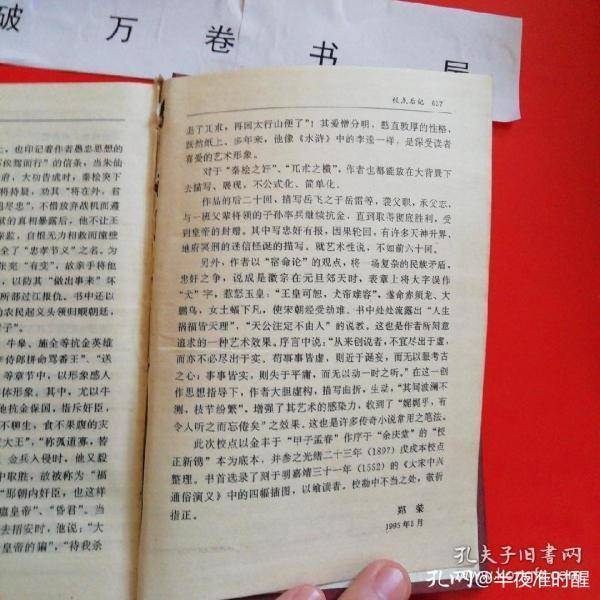 破 万 卷 书 屋
校点后记 617
走了兀朮,再回太行山便了”!其爱憎分明,憨直敦厚的性格,
跃然纸上。多年来,他像《水浒》中的李逵一样,是深受读者
喜爱的艺术形象。
对于“秦桧之奸”、“兀朮之横”,作者也都能放在大背景下
去描写、展现,不公式化、简单化。
作品的后二十回,描写岳飞之子岳雷等,袭父职,承父志,
与一班父辈将领的子孙率兵继续抗金,直到取得彻底胜利,受
到皇帝的封赠。其中写忠奸有报,因果轮回,有许多天神升界、
地府冥刑的迷信怪诞的描写,就艺术性说,不如前六十回。
另外,作者以“宿命论”的观点,将一场复杂的民族矛盾,
忠奸之争,说成是徽宗在元旦郊天时,表章上将大字误作
“犬”字,惹怒玉皇:“王皇可恕,犬帝难容”。遂命赤须龙、大
鹏鸟,女土蝠下凡,使宋朝经受劫难。书中处处流露出“人生
祸福皆天理”,“天公注定不由人”的说教,这也是作者所刻意
追求的一种艺术效果。序言中说:“从来创说者,不宜尽出于虚,
而亦不必尽出于实。苟事事皆虚,则近于诞妄,而无以服考古
之心;事事皆实,则失于平庸,而无以动一时之听。”在这一创
作思想指导下,作者大胆虚构,描写曲折,生动,“其间波澜不
测,枝节纷繁”。增强了其艺术的感染力,收到了“娓娓乎,有
令人听之而忘倦矣”之效果,这也是许多传奇小说常用之笔法。
此次校点以金丰于“甲子孟春”作序于“余庆堂”的“校
正新镌”本为底本,并参之光绪二十三年(1897)戊戌本校点
整理。书首选录了刻于明嘉靖三十一年(1552)的《大宋中兴
通俗演义》中的四幅插图,以飨读者。校勘中不当之处,敬祈
指正。
郑荣
1995年1月
上,也印记着作者愚忠思想的
俟驾而行”的信条,当朱仙
府,大功告成时,秦桧突下
将持疑,劝其“将在外,君
曷尽忠”,不惜放弃战机而遵
狱的真相暴露后,他不让王
亲监,自恨无力相救而撞壁
全了“忠孝节义”之名。为
宪“有变”,故亲手将他
,以防其“做出事来”坏
所部过江报仇。书中还以
的农民起义头领归顺朝廷,
子”。
牛皋、施全等抗金英雄
李侍郎拼命骂番王”、“送
等章节中,以形象感人
体形象。其中,尤以牛
他抗金保国,指斥奸臣,
不聊生,食不果腹的灾
大王”,“称孤道寡,替
金兵入侵时。他又毅
中取胜,故被称为“福
“那朝内奸臣,也这样
鹿皇帝”、“昏君”。当
去招安时,他说:“大
皇帝的䎬”,“待我杀
孔夫子旧书网
孔网@半夜准时醒